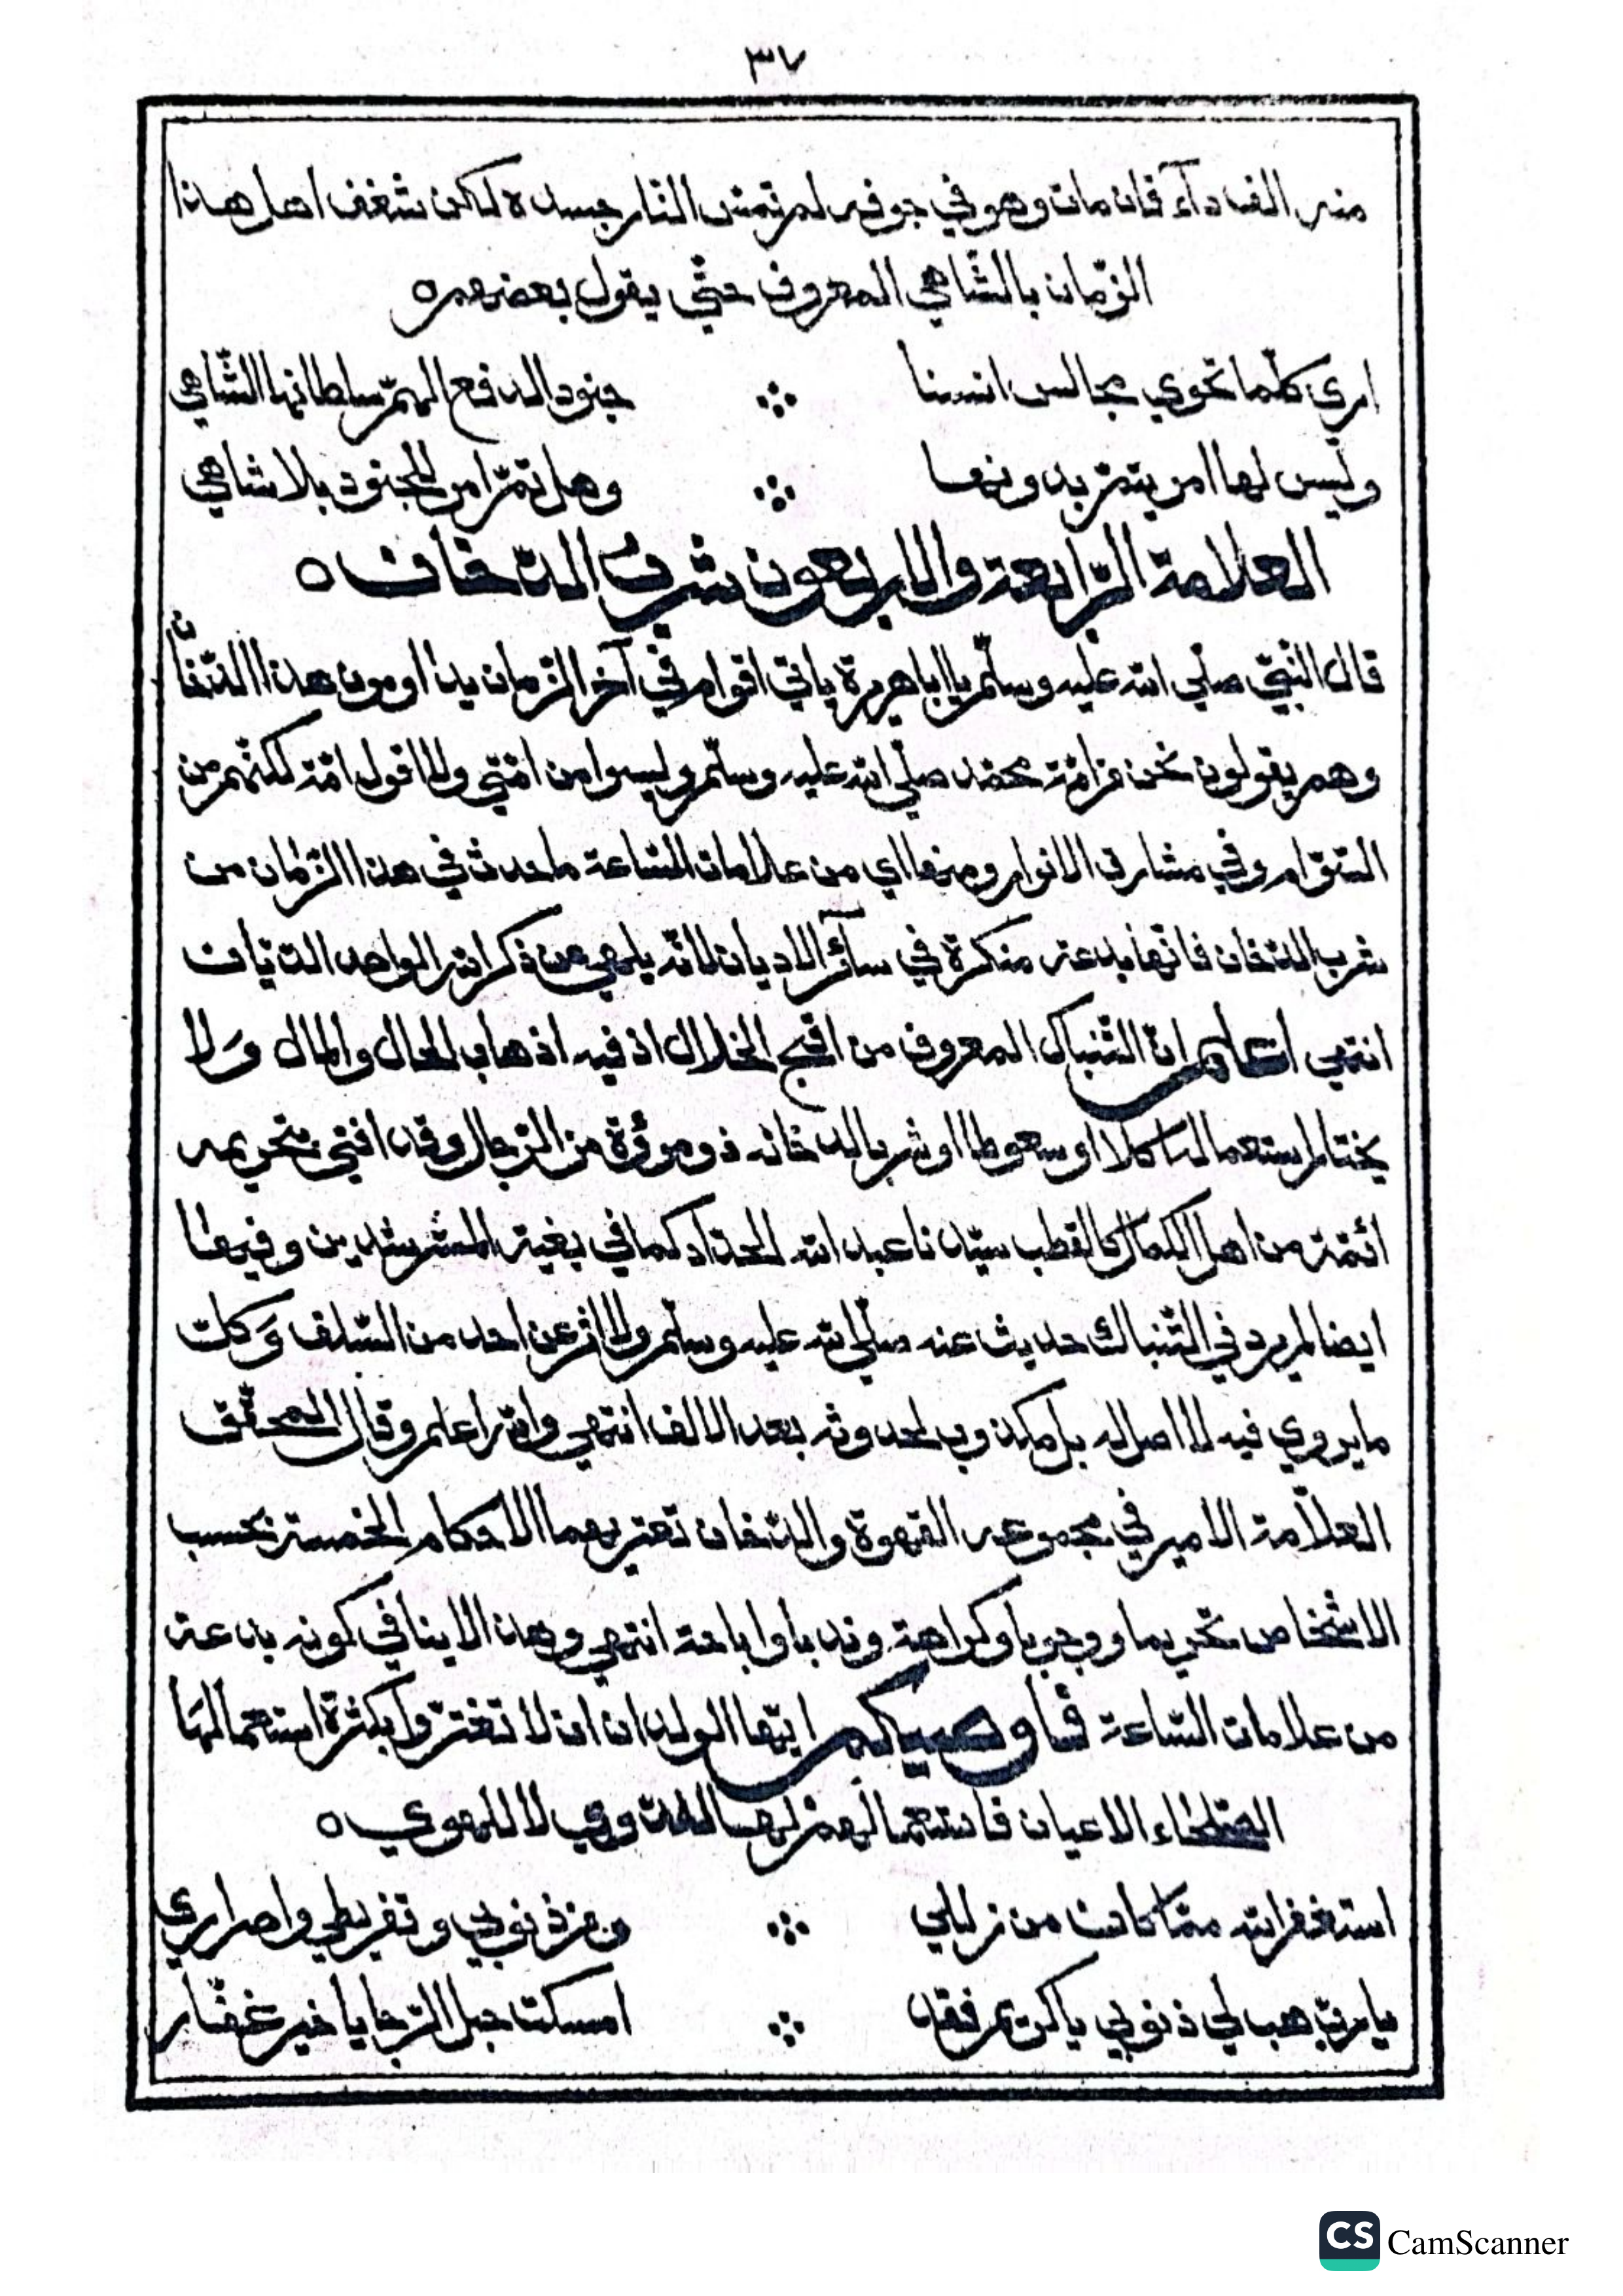 ٣٧
منه الف دآء فان مات وهو في جوفه لم تمسّ النار جسده لكن شغف اهل هذا
الزّمان بالشّاهي المعروف حتّي يقول بعضهم ه
اري كلّما تحوي مجالس انسنا ∴ جنود الدفع الهمّ سلطانها الشّاهي
وليس لها امر يتمّ بدونها ∴ وهل تمّ امر للجنود بلا شاهي
العلامة الرّابعة والاربعون شرب الدّخان ه
قال النّبيّ صلّي الله عليه وسلّم يا اباهريرة ياتي اقوام في آخر الزّمان يداومون هذا الدّخان
وهم يقولون نحن من امّة محمّد صلّي الله عليه وسلّم وليسوا من امّتي ولا اقول امّة لكنّهم من
السّوّام وفي مشارق الانوار ومنها اي من علامات السّاعة ما حدث في هذا الزّمان من
شرب الدّخان فانّها بدعة منكرة في سآئر الاديان لانّه يلهي عن ذكر الله الواحد الديّان
انتهي اعلم انّ التّنباك المعروف من اقبح الخلال اذ فيه اذهاب الحال والمال وَلا
يختار استعماله اكلا او سعوطا او شربا لدخانه ذو مروّة من الرّجال وقد افتي بتحريمه
ائمّة من اهل الكمال كالقطب سيّدنا عبد الله الحدّاد كما في بغية المسترشدين وفيها
ايضا لم يرد في التّنباك حديث عنه صلّي الله عليه وسلّم ولا اثر عن احد من السّلف وَكلّ
ما يروي فيه لا اصل له بل مكذوب لحدوثه بعد الالف انتهي والله اعلم وقال المحقّق
العلاّمة الامير في مجموعه القهوة والدّخان تعتريهما الاحكام الخمسة بحسب
الاشخاص تحريما ووجوبا وكراهة وندبا واباحة انتهي وهذا لا ينافي كونه بدعة
من علامات السّاعة فاوصيكم ايّها الولدان ان لا تغترّوا بكثرة استعمالها
الصّلحاء الاعيان فاستعمالهم لها للدّوي لا للهوي ه
استغفر الله ممّا كان من زللي ∴ ومن ذنوبي وتفريطي واصراري
يا ربّ هب لي ذنوبي يا كريم فقد ∴ امسكت حبل الرّجا يا خير غفّار
CS CamScanner